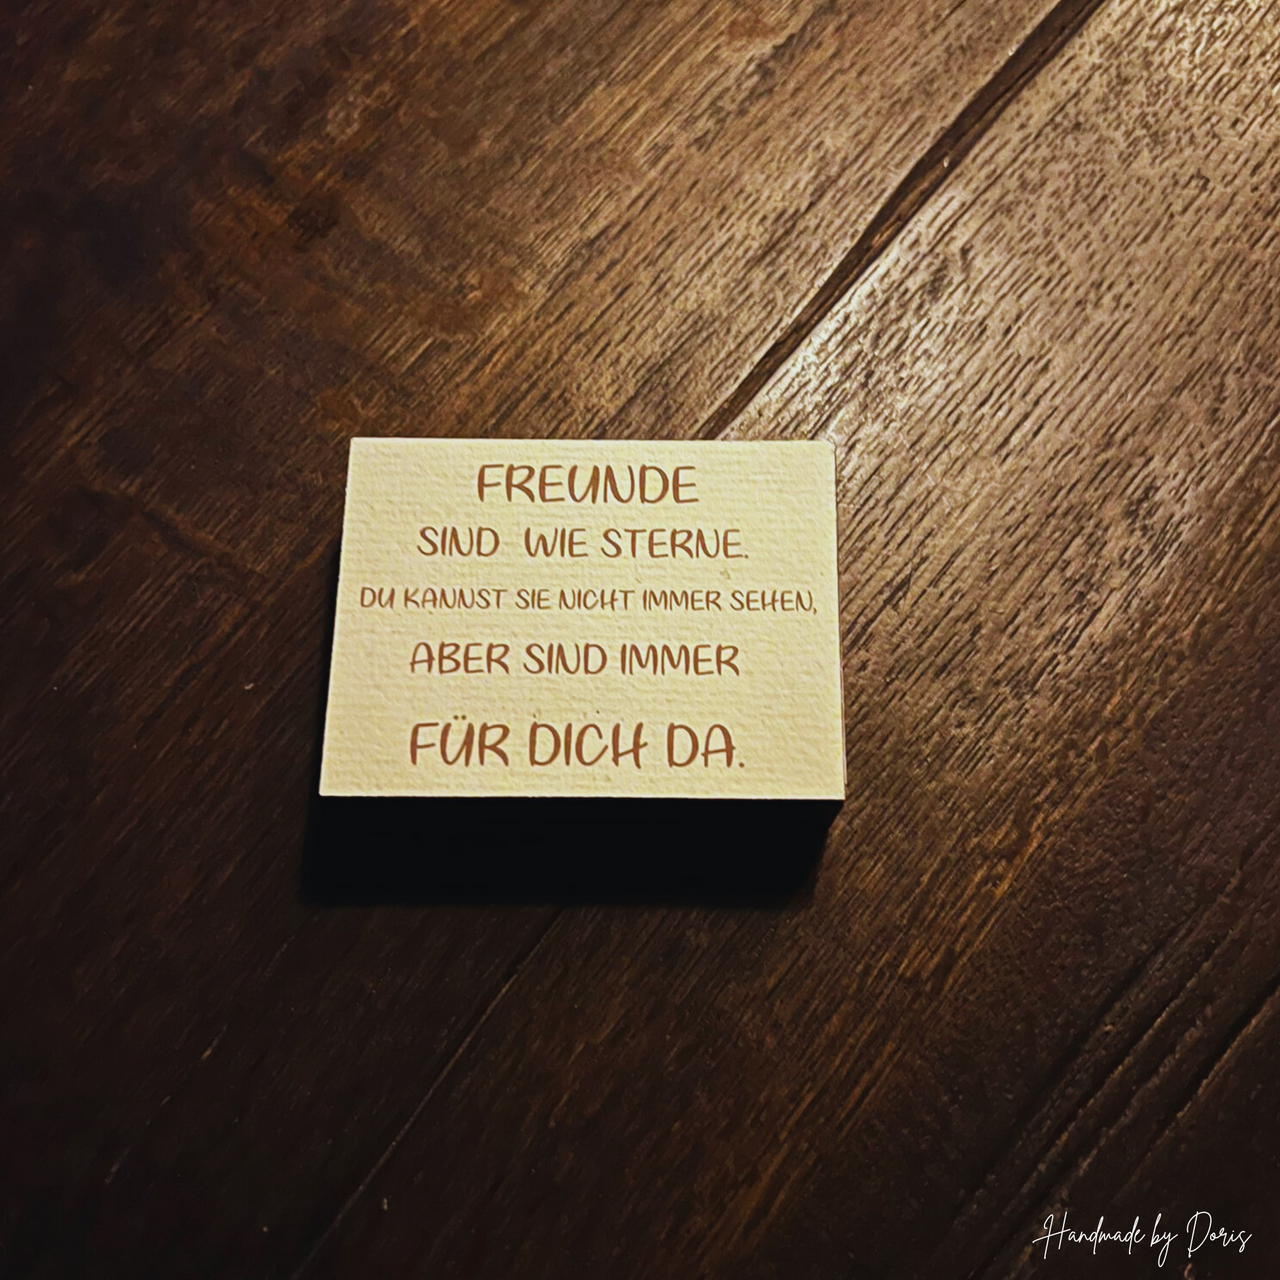 FREUNDE
SIND WIE STERNE.
DU KANNST SIE NICHT IMMER SEHEN,
ABER SIND IMMER
FÜR DICH DA.
Handmade by Doris